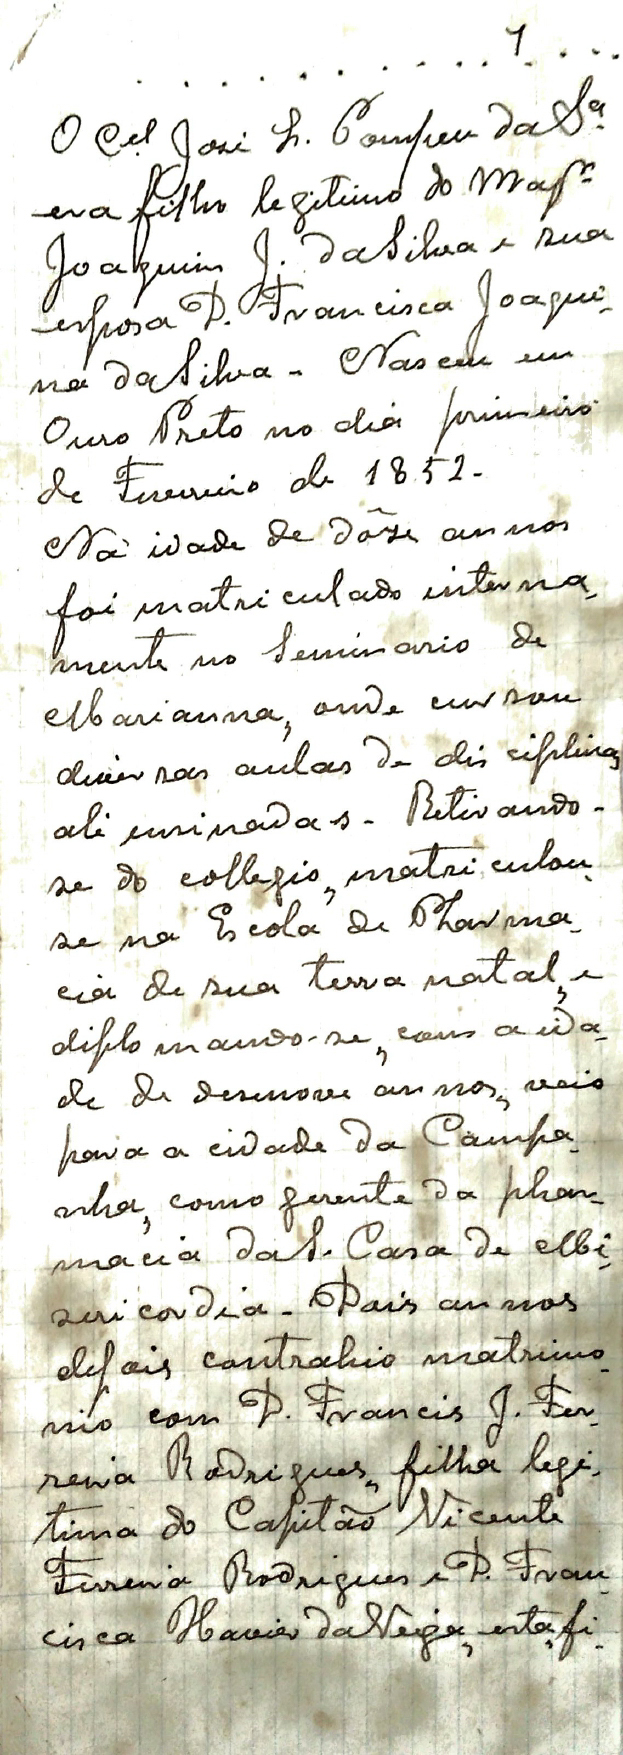 1
O Cel José L. Pompeu da Sa
era filho legitimo do Majr
Joaquim J. da Silva e sua
esposa D. Francisca Joaqui-
na da Silva - Nasceu em
Ouro Preto no dia primeiro
de Fevereiro de 1852-
Na idade de dôse annos
foi matriculado interna-
mente no Seminario de
Marianna, onde cursou
diversas aulas de disciplinas
ali ensinadas - Retirando-
se do collegio, matriculou-
se na Escola de Pharma-
cia de sua terra natal, e
diplomando-se, com a ida-
de de desenove annos, veio
para a cidade da Campa-
nha, como gerente da phar-
macia da S. Casa de Mi-
sericordia - Dois annos
depois contrahio matrimo-
nio com D. Francis J. Fer-
reira Rodrigues, filha legi-
tima do Capitão Vicente
Ferreira Rodrigues e D. Fran-
cisca Xavier da Veiga, esta, fi-